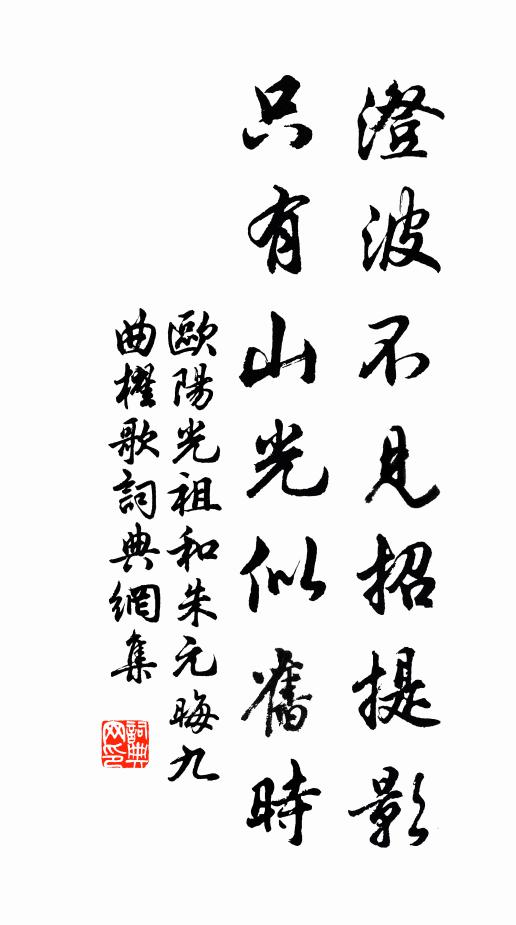 澄波不見招提影
只有山光似舊時
歐陽光祖和朱元晦九
曲櫂歌詞典網集
詞典
网印